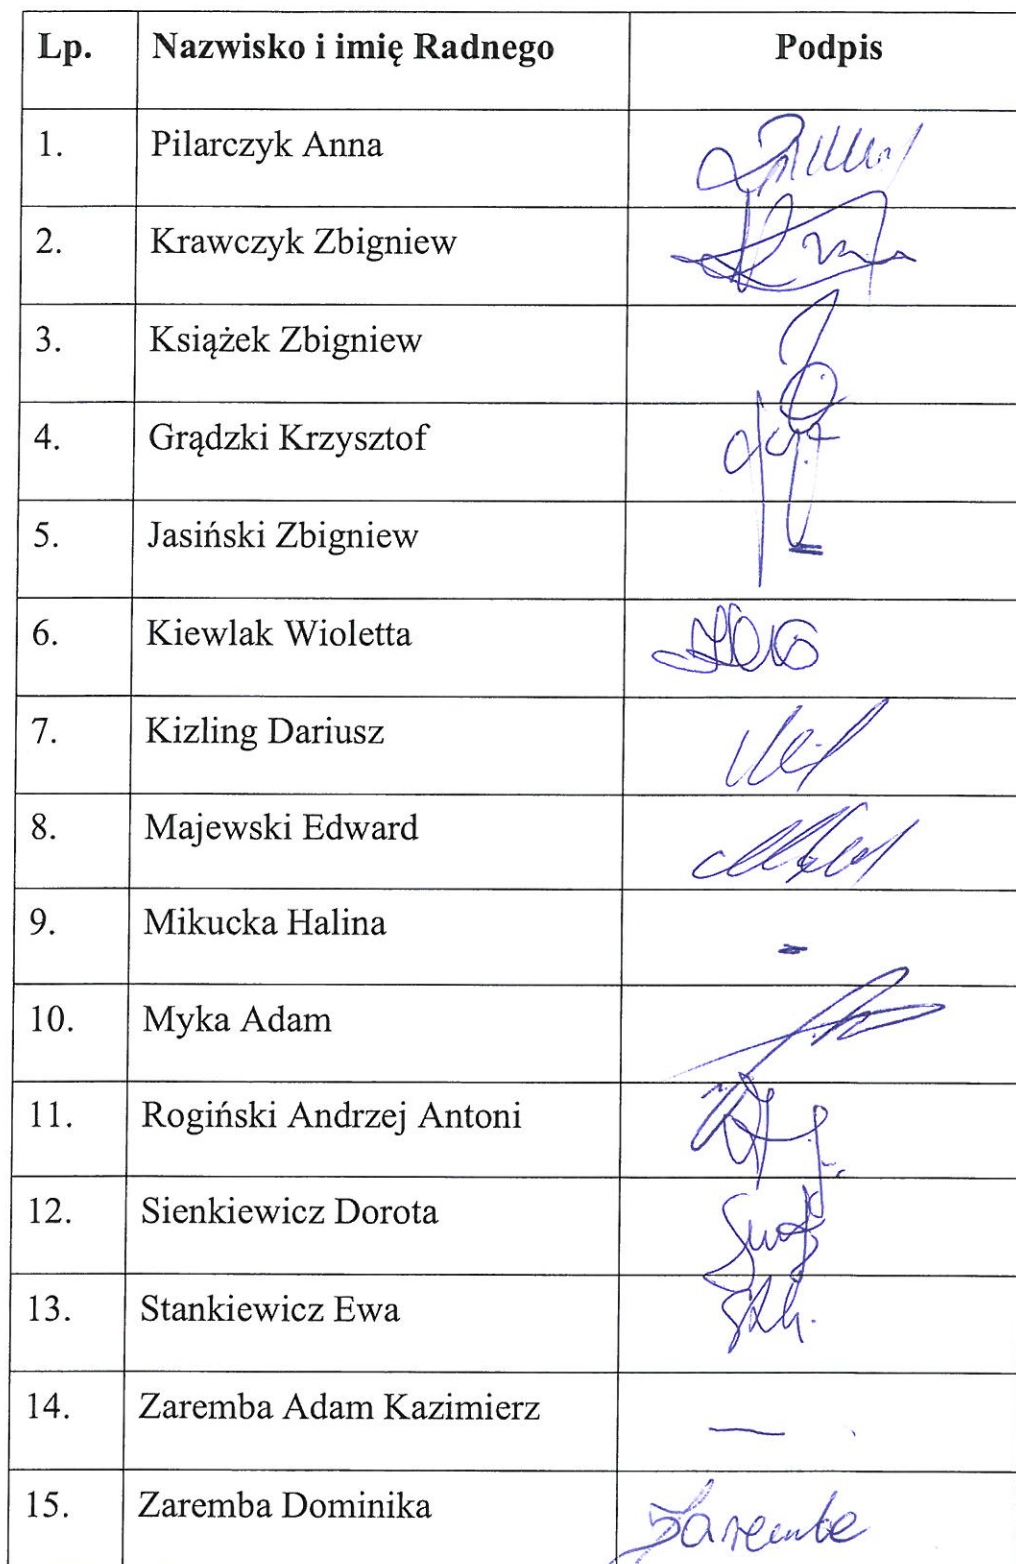 Lp. Nazwisko i imię Radnego Podpis
1. Pilarczyk Anna
2. Krawczyk Zbigniew
3. Książek Zbigniew
4. Grądzki Krzysztof
5. Jasiński Zbigniew
6. Kiewlak Wioletta
7. Kizling Dariusz
8. Majewski Edward
9. Mikucka Halina -
10. Myka Adam
11. Rogiński Andrzej Antoni
12. Sienkiewicz Dorota
13. Stankiewicz Ewa
14. Zaremba Adam Kazimierz —
15. Zaremba Dominika Zaremba